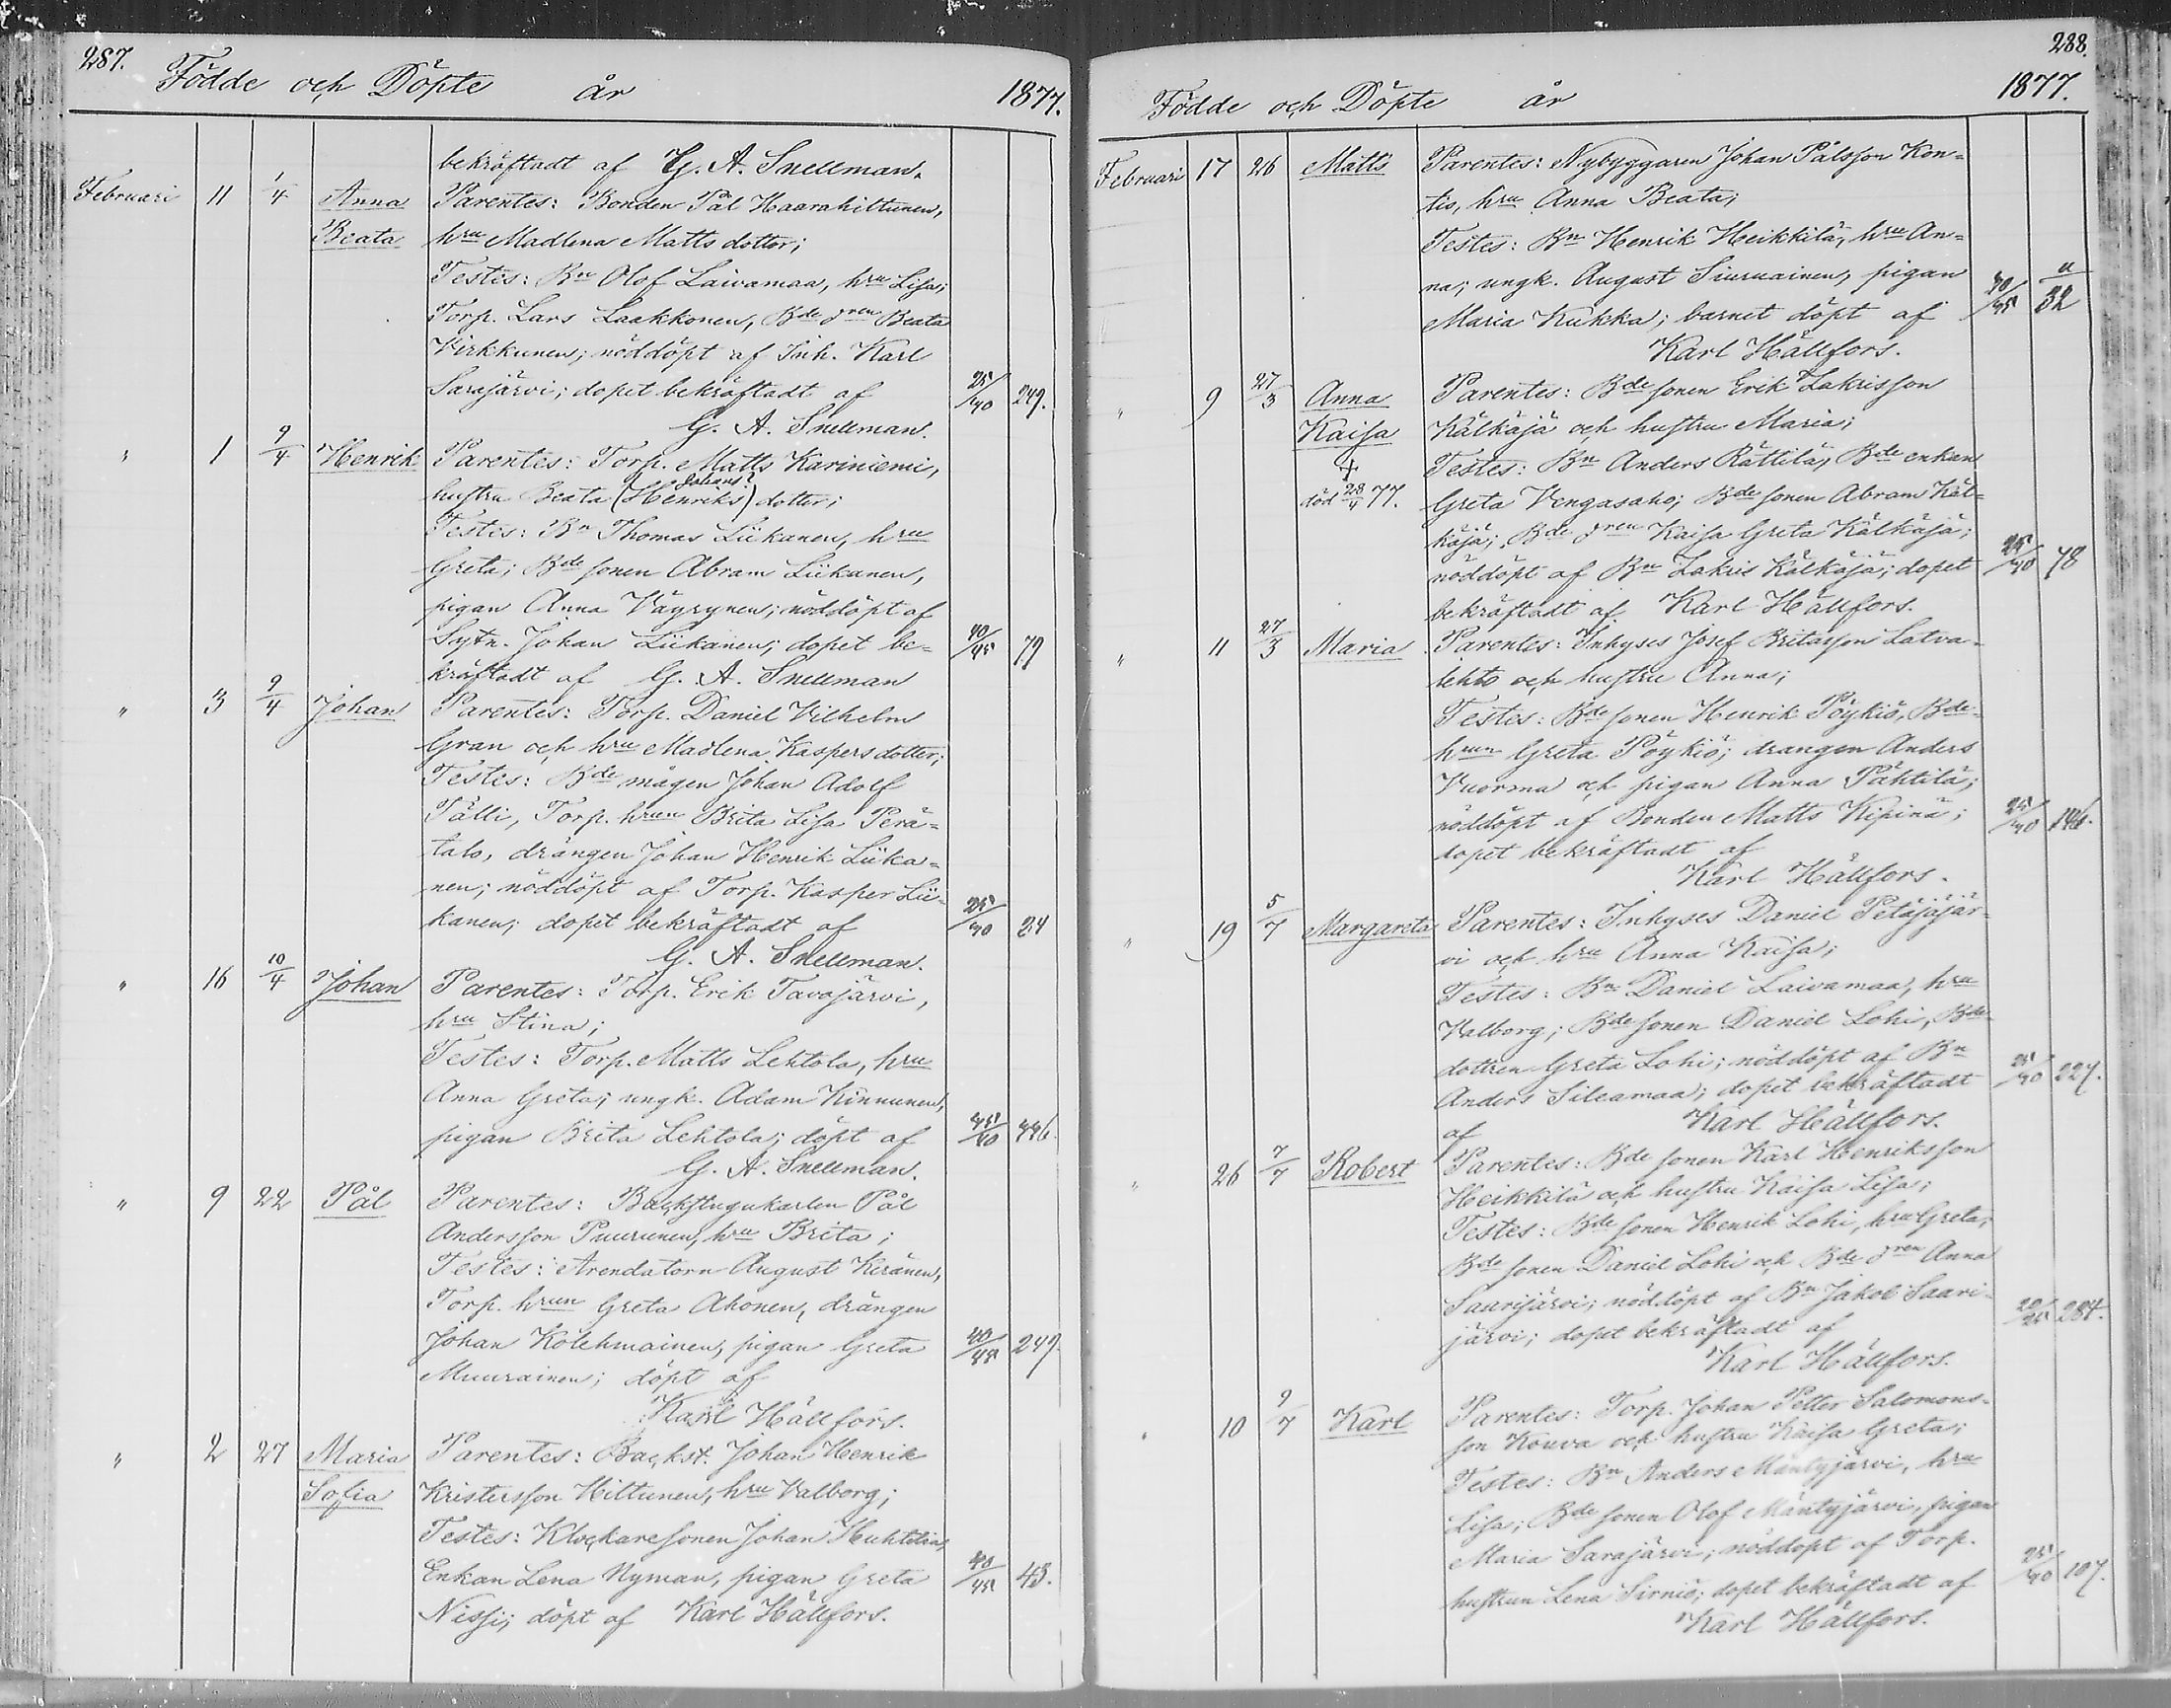 287.
Födde och Döpte år 1877.
bekräftadt af G. A. Snellman.
Februari 11 1/4 Anna Parentes: Bonden Pål Haarahiltunen,
Beata hru Madlena Matts dotter;
Testes: Bn Olof Laivamaa, hru Lisa;
Torp. Lars Laakkonen, Bde dren Beata
Virkkunen; nöddöpt af Inh. Karl
Sarajärvi; dopet bekräftadt af 25/30 249.
G. A. Snellman.
" 1 9/4 Henrik Parentes: Torp. Matts Kariniemi,
Johans?
hustru Beata (Henriks) dotter;
Testes: Bn Thomas Liikanen, hru
Greta; Bde sonen Abram Liikanen,
pigan Anna Väyrynen; nöddöpt af
Sytn. Johan Liikanen; dopet be= 40/45 79
kräftadt af G. A. Snellman
" 3 9/4 Johan Parentes: Torp. Daniel Vilhelm
Gran och hru Madlena Kaspers dotter;
Testes: Bde mågen Johan Adolf
Pälli, Torp. hrun Brita Lisa Perä=
talo, drängen Johan Henrik Liika=
nen; nöddöpt af Torp. Kasper Lii=
kanen; dopet bekräftadt af 25/30 24
G. A. Snellman.
" 16 10/4 Johan Parentes: Torp. Erik Tavajärvi,
hru Stina;
Testes: Torp. Matts Lehtola, hru
Anna Greta; ungk. Adam Kinnunen,
pigan Brita Lehtola; döpt af
G. A. Snellman.
" 9 22 Pål Parentes: Backstugukarlen Pål
Andersson Puurunen, hru Brita;
Testes: Arendatorn August Keränen,
Torp. hrun Greta Ahonen, drängen
Johan Kolehmainen, pigan Greta 40/45 249.
Muurainen; döpt af
Karl Hällfors.
" 2 27 Maria Parentes: Backst. Johan Henrik
Sofia Kristersson Hiltunen, hru Valborg;
Testes: Klockaresonen Johan Huhtelin,
Enkan Lena Nyman, pigan Greta 40/45 43.
Nissi; döpt af Karl Hällfors.
288.
Födde och Döpte år 1877.
Februari 17 26 Matts Parentes: Nybyggaren Johan Pålsson Kon=
tio, hru Anna Beata;
Testes: Bn Henrik Heikkilä, hru An=
na; ungk. August Siuruainen, pigan
Maria Kukka; barnet döpt af 32
Karl Hällfors.
" 9 27/3 Anna Parentes: Bde sonen Erik Zakrisson
Kaisa Kälkäjä och hustru Maria;
+ Testes: Bn Anders Rättilä, Bde enkan
död 28/4 77. Greta Vengasaho; Bde sonen Abram Käl=
käjä; Bde dren Kaisa Greta Kälkäjä;
nöddöpt af Bn Zakris Kälkäjä; dopet 25/30 78
bekräftadt af Karl Hällfors.
" 11 27/3 Maria Parentes: Inhyses Josef Britasson Latva-
lehto och hustru Anna;
Testes: Bde sonen Henrik Pöykiö, Bde-
hrun Greta Pöykiö; drängen Anders
Vuorma och pigan Anna Pähtilä;
nöddöpt af Bonden Matts Kipinä; 25/30 146.
dopet bekräftadt af
Karl Hällfors.
" 19 5/7 Margareta Parentes: Inhyses Daniel Petäjäjär-
vi och hru Anna Kaisa;
Testes: Bn Daniel Laivamaa, hru
Valborg; Bde sonen Daniel Lohi, Bde
dottren Greta Lohi; nöddöpt af Bn
Anders Sileamaa; dopet bekräftadt 25/30 227.
af Karl Hällfors.
" 26 7/7 Robert Parentes: Bde sonen Karl Henriksson
Heikkilä och hustru Kaisa Lisa;
Testes: Bde sonen Henrik Lohi, hru Greta;
Bde sonen Daniel Lohi och Bde dren Anna
Saurijärvi; nöddöpt af Bn Jakob Saari-
järvi; dopet bekräftadt af 20/25 284.
Karl Hällfors.
" 10 9/7 Karl Parentes: Torp. Johan Petter Salomons-
son Kouva och hustru Kaisa Greta;
Testes: Bn Anders Mäntyjärvi, hru
Lisa; Bde sonen Olof Mäntyjärvi, pigan
Maria Sarajärvi; nöddöpt af Torp.
hustrun Lena Sirniö; dopet bekräftadt af 25/30 107.
Karl Hällfors.